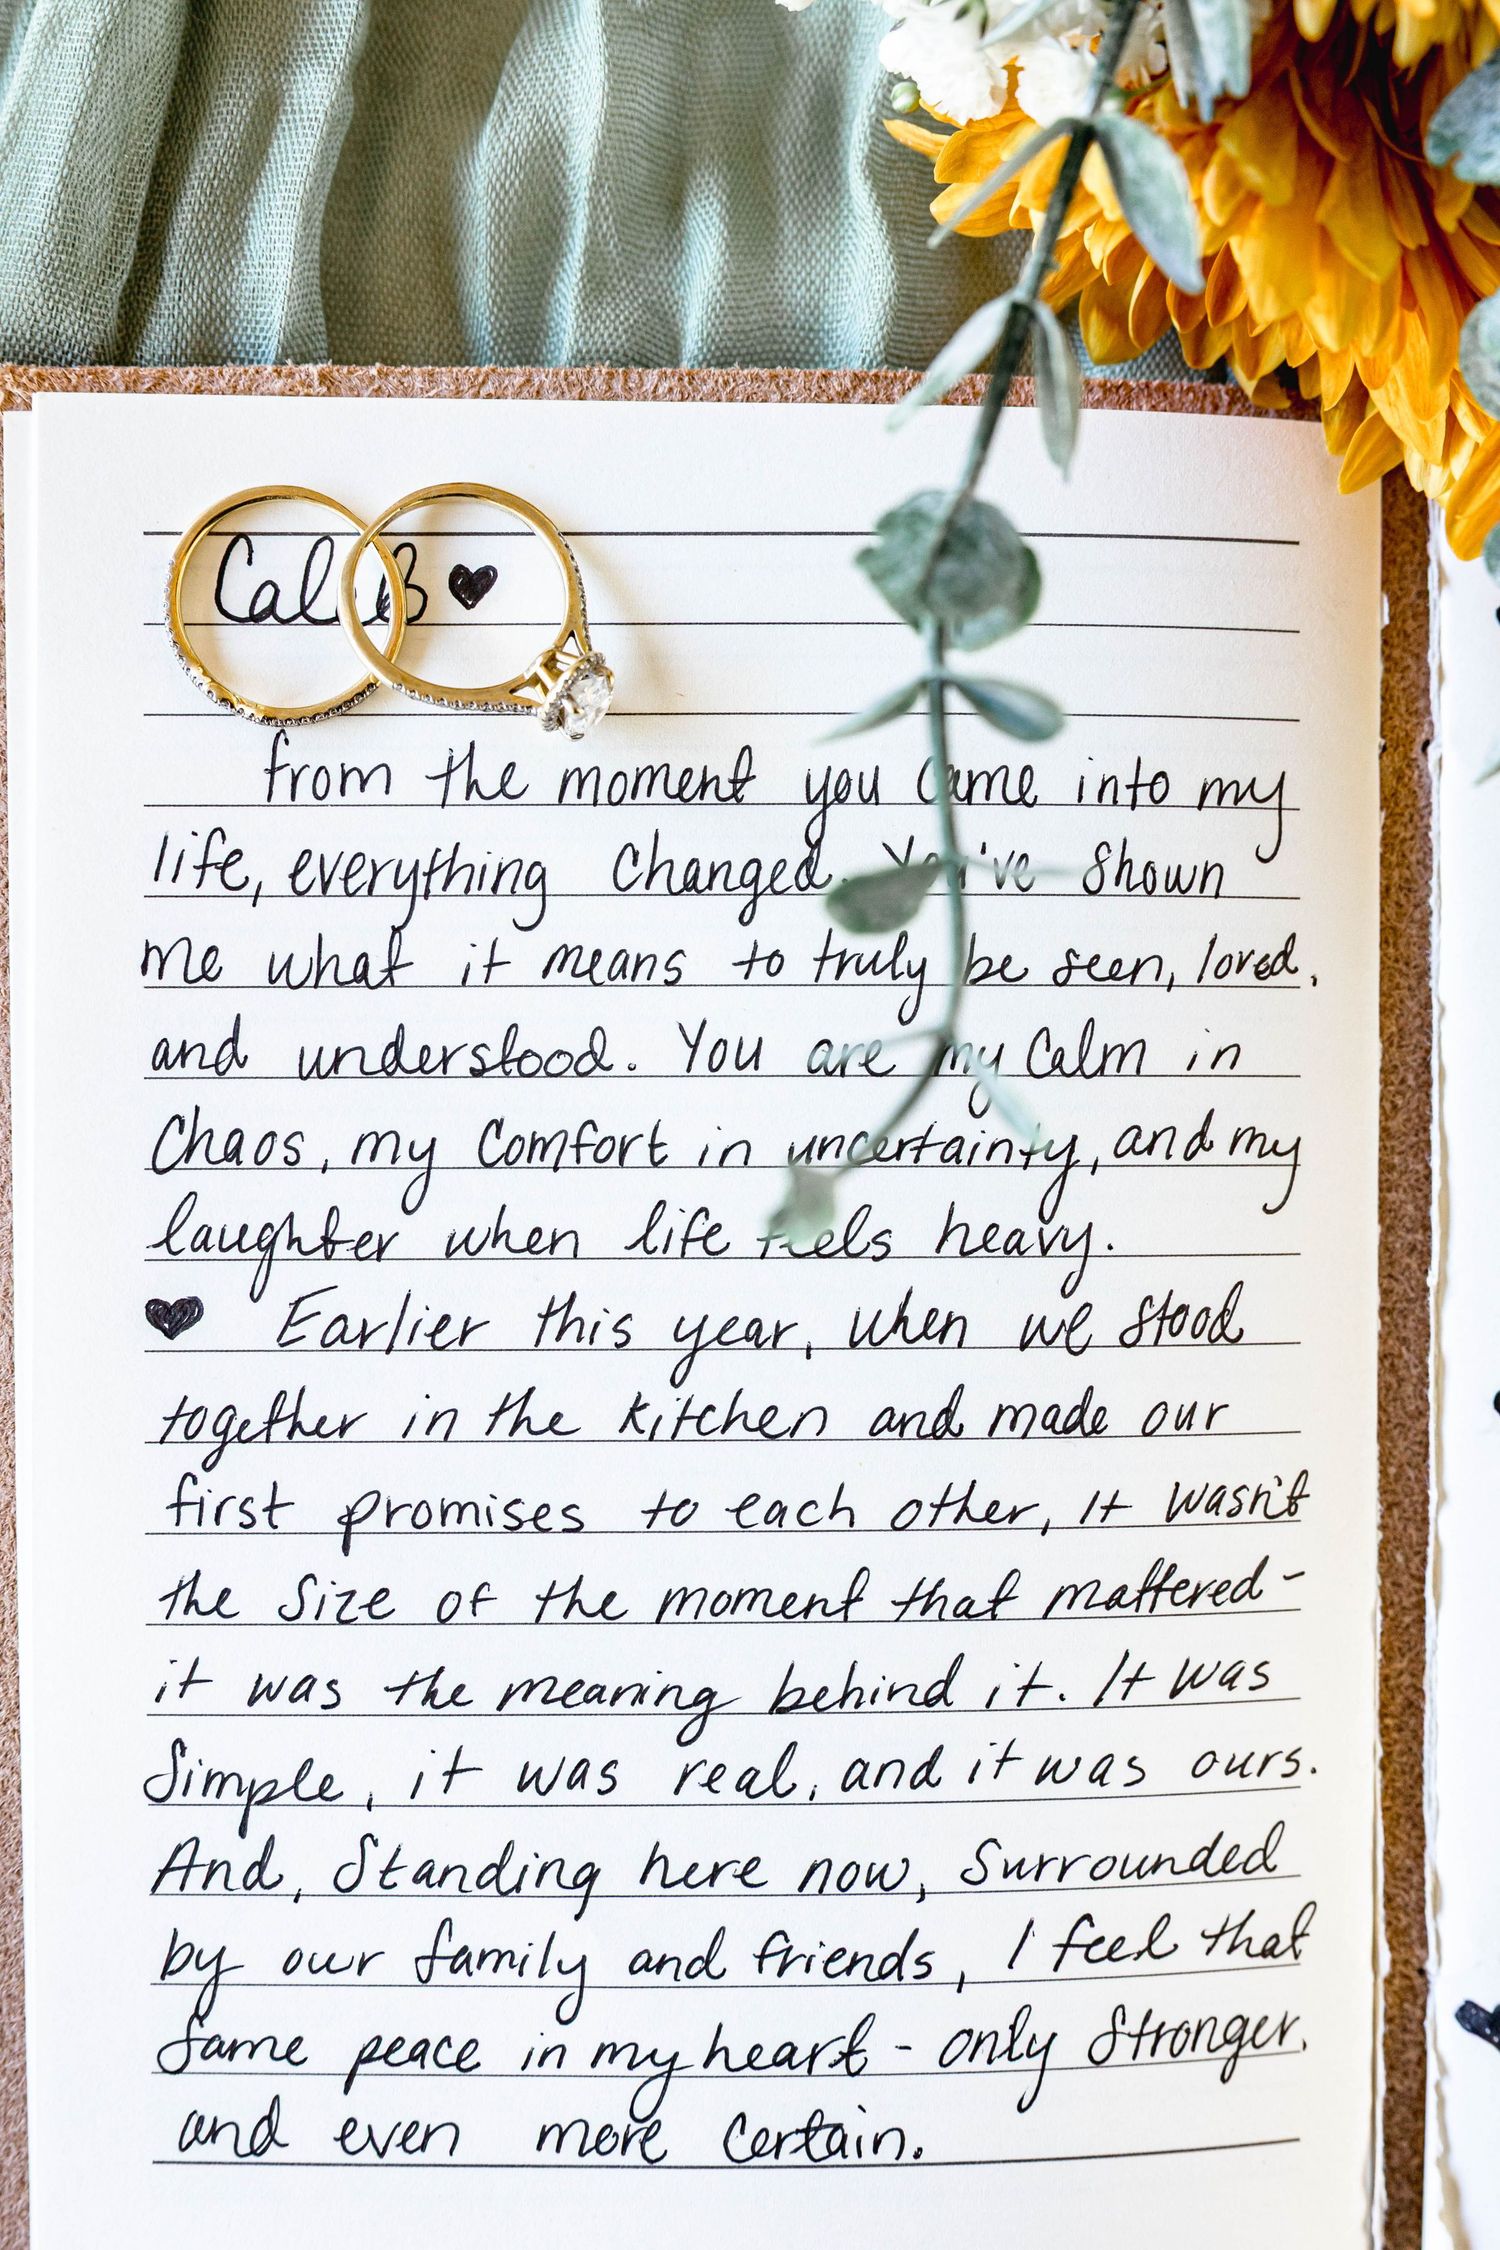 Caleb ♥
from the moment you came into my
life, everything changed. You've shown
me what it means to truly be seen, loved,
and understood. You are my calm in
Chaos, my comfort in uncertainty, and my
laughter when life feels heavy.
♥ Earlier this year, when we stood
together in the kitchen and made our
first promises to each other, it wasn't
the size of the moment that mattered-
it was the meaning behind it. It was
Simple, it was real, and it was ours.
And, Standing here now, Surrounded
by our family and friends, I feel that
same peace in my heart - only stronger.
and even more certain.